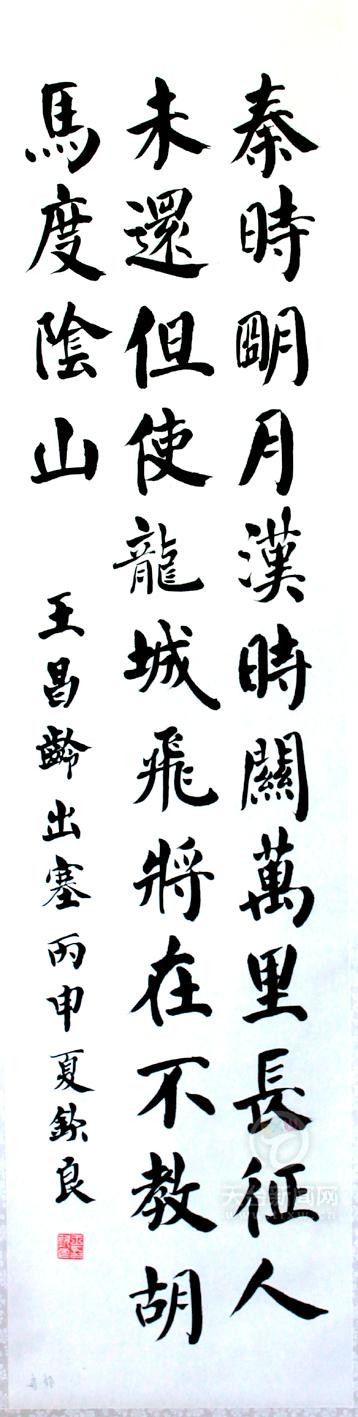 秦時明月漢時關萬里長征人
未還但使龍城飛將在不教胡
馬度陰山
王昌齡出塞丙申夏欽良